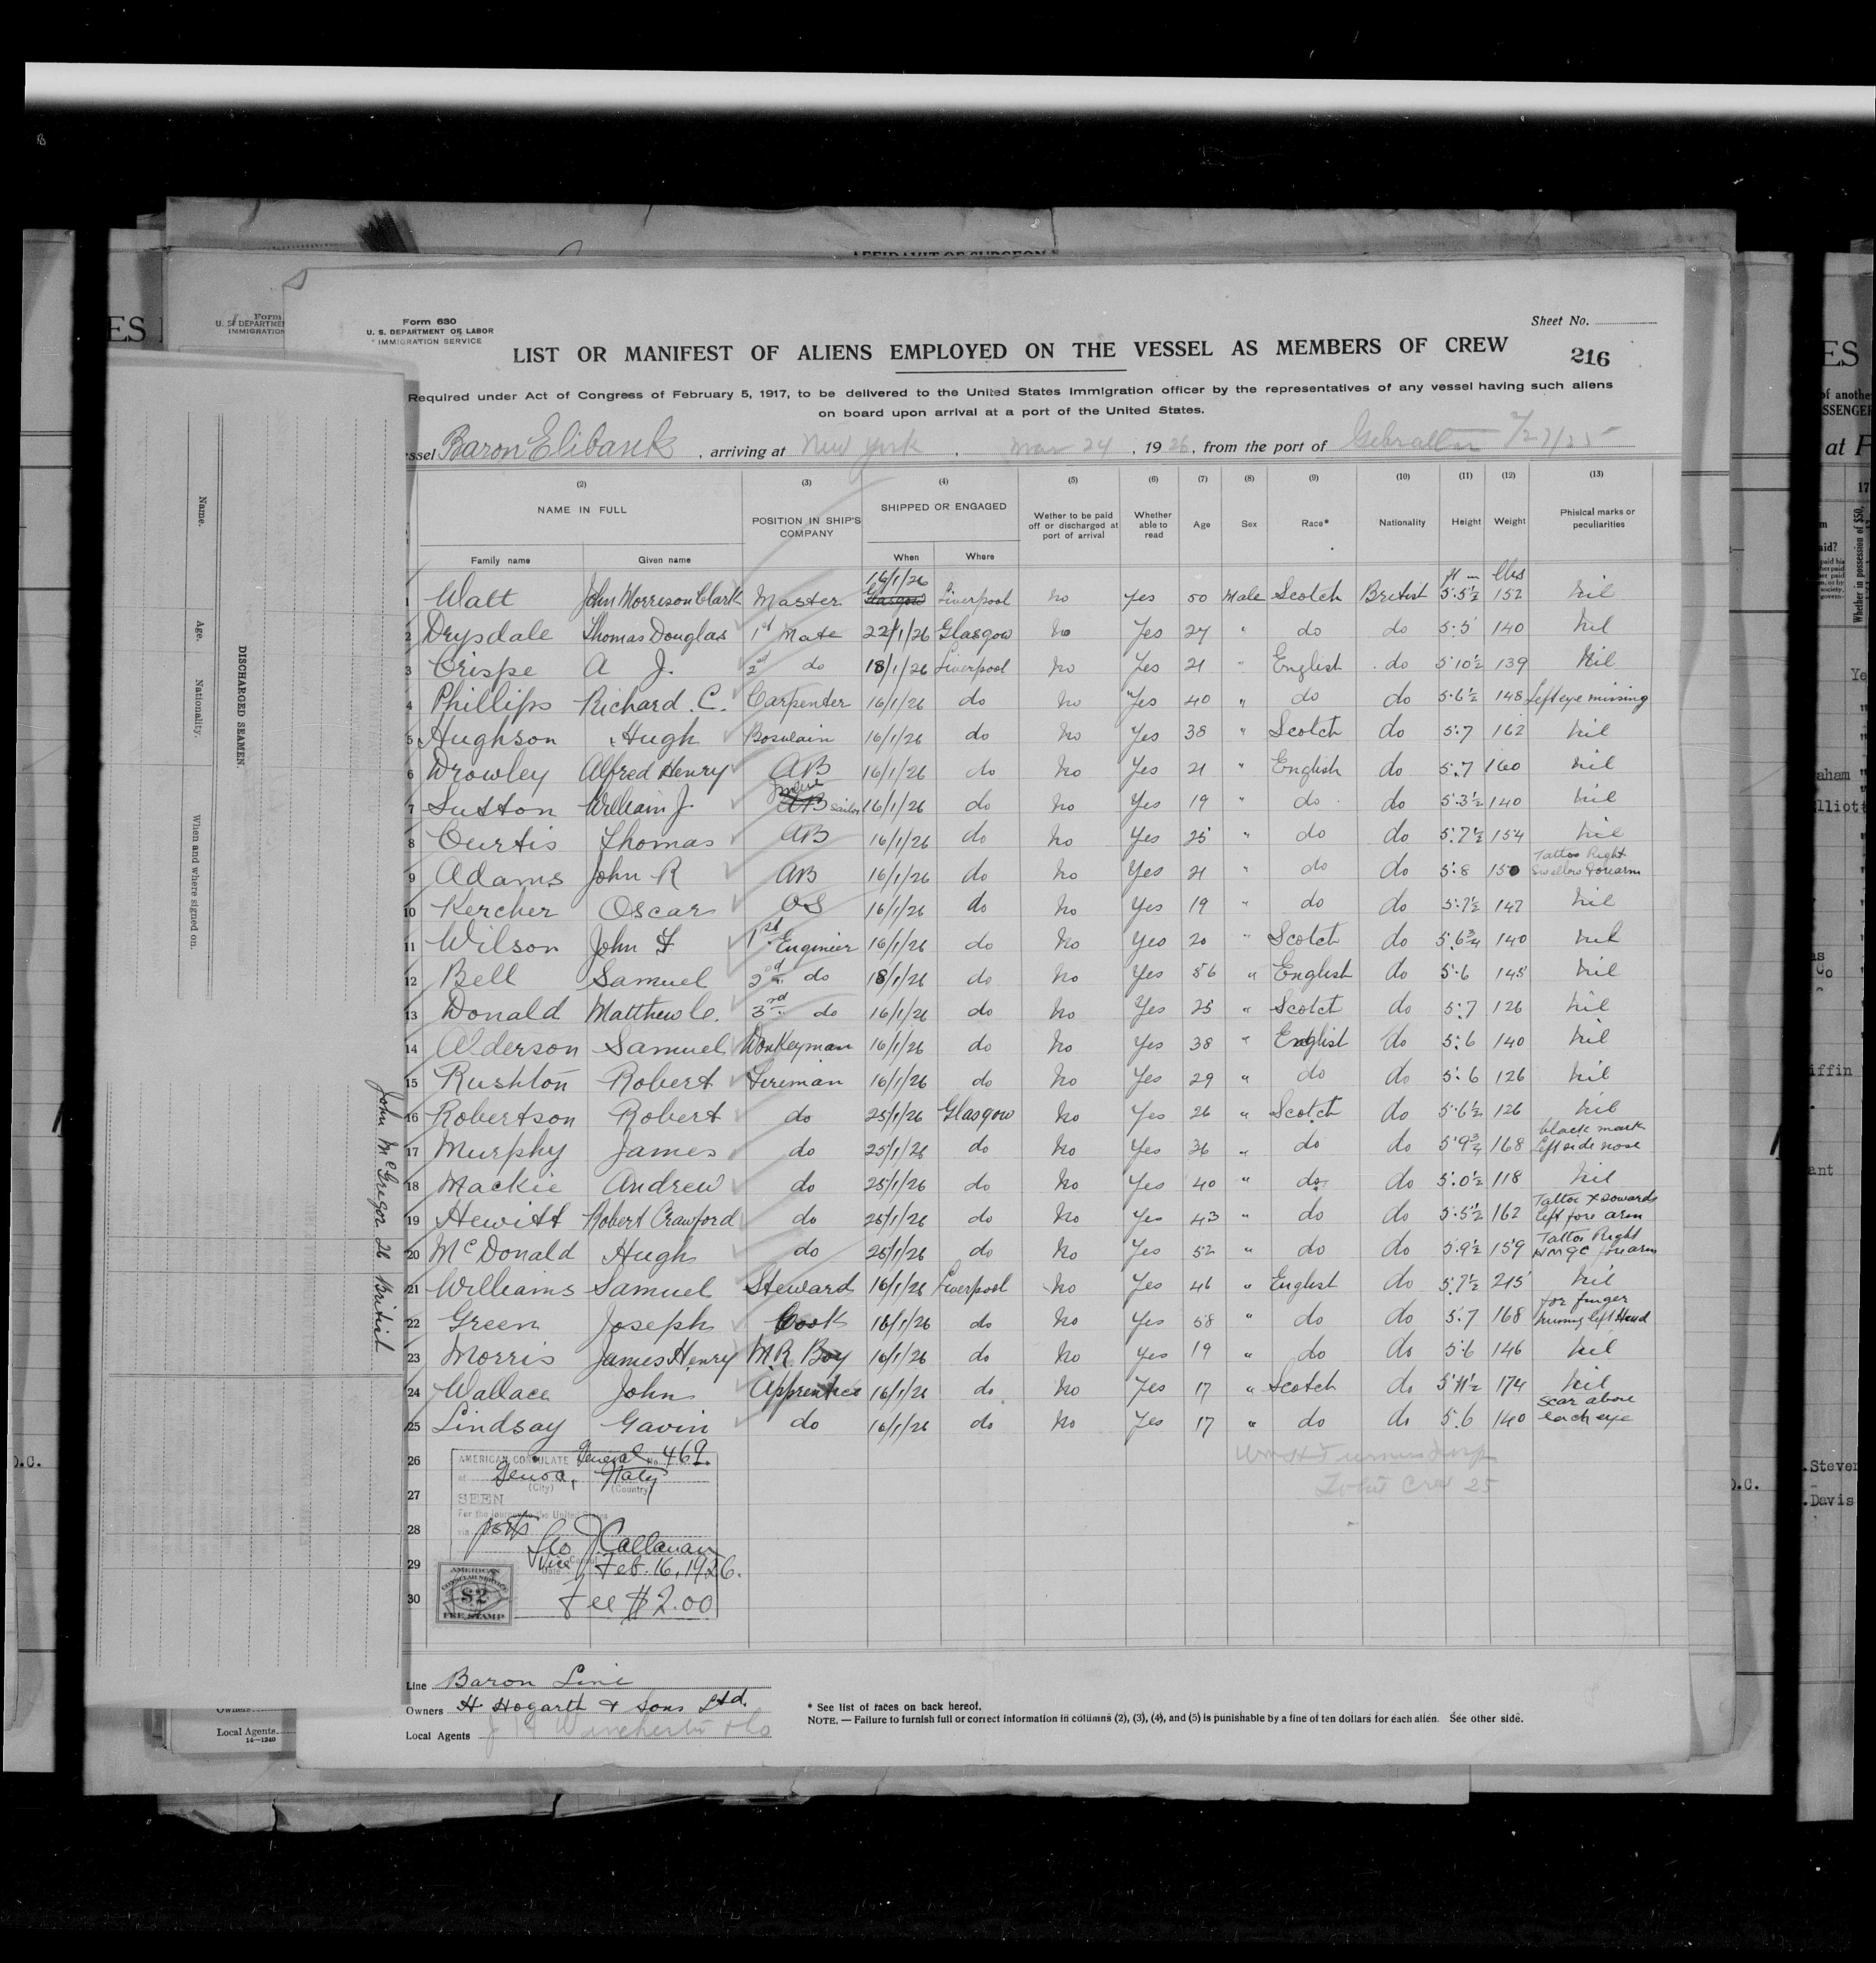 AFFIDAVIT OF SURGEON
Form 630
U. S. DEPARTMENT OF LABOR
IMMIGRATION SERVICE
Sheet No.
LIST OR MANIFEST OF ALIENS EMPLOYED ON THE VESSEL AS MEMBERS OF CREW
216
Required under Act of Congress of February 5, 1917, to be delivered to the United States Immigration officer by the representatives of any vessel having such aliens
on board upon arrival at a port of the United States.
ssel Baron Elibank, arriving at New York, Mar 24, 1926, from the port of Gibraltar
(2) (3) (4) (5) (6) (7) (8) (9) (10) (11) (12) (13)
NAME IN FULL POSITION IN SHIP'S COMPANY SHIPPED OR ENGAGED Wether to be paid off or discharged at port of arrival Whether able to read Age Sex Race* Nationality Height Weight Phisical marks or peculiarities
Family name Given name When Where
ft in lbs
1 Watt John Morrison Clark Master 16/1/26 Glasgow Liverpool No Yes 50 Male Scotch British 5.5½ 152 Nil
2 Drysdale Thomas Douglas 1st Mate 22/1/26 Glasgow No Yes 27 " do do 5.5 140 Nil
3 Crispe A J. 2nd do 18/1/26 Liverpool No Yes 21 " English do 5.10½ 139 Nil
4 Phillips Richard. C. Carpenter 16/1/26 do No Yes 40 " do do 5.6½ 148 Left eye missing
5 Hughson Hugh Boswain 16/1/26 do No Yes 38 " Scotch do 5.7 162 Nil
6 Drowley Alfred Henry AB 16/1/26 do No Yes 21 " English do 5.7 160 Nil
7 Sutton William J. AB Sailor 16/1/26 do No Yes 19 " do do 5.3½ 140 Nil
8 Curtis Thomas AB 16/1/26 do No Yes 25 " do do 5.7½ 154 Nil
9 Adams John R AB 16/1/26 do No Yes 21 " do do 5.8 150 Tattoo Right Swallow Forearm
10 Kercher Oscar OS 16/1/26 do No Yes 19 " do do 5.7½ 147 Nil
11 Wilson John F 1st Enginier 16/1/26 do No Yes 20 " Scotch do 5.6¾ 140 Nil
12 Bell Samuel 2nd do 18/1/26 do No Yes 56 " English do 5.6 145 Nil
13 Donald Matthew C. 3rd do 16/1/26 do No Yes 25 " Scotch do 5.7 126 Nil
14 Alderson Samuel Donkeyman 16/1/26 do No Yes 38 " English do 5.6 140 Nil
15 Rushton Robert Fireman 16/1/26 do No Yes 29 " do do 5.6 126 Nil
16 Robertson Robert do 25/1/26 Glasgow No Yes 26 " Scotch do 5.6½ 126 Nil
17 Murphy James do 25/1/26 do No Yes 36 " do do 5.9¾ 168 black mark left side nose
18 Mackie Andrew do 25/1/26 do No Yes 40 " do do 5.0½ 118 Nil
19 Hewitt Robert Crawford do 25/1/26 do No Yes 43 " do do 5.5½ 162 Tattoo left fore arm
20 McDonald Hugh do 25/1/26 do No Yes 52 " do do 5.9½ 159 Tattoo Right forearm
21 Williams Samuel Steward 16/1/26 Liverpool No Yes 46 " English do 5.7½ 215 Nil
22 Green Joseph Cook 16/1/26 do No Yes 58 " do do 5.7 168 for finger missing left Hand
23 Morris James Henry M.R. Boy 16/1/26 do No Yes 19 " do do 5.6 146 Nil
24 Wallace John Apprentice 16/1/26 do No Yes 17 " Scotch do 5.11½ 174 Nil
25 Lindsay Gavin do 16/1/26 do No Yes 17 " do do 5.6 140 Scar above each eye
26
27
28
29
30
AMERICAN CONSULATE General No. 469.
at Genoa, Italy
(City) (Country)
SEEN
For the journey to the United States
via ports
Geo J. Callanan
Vice Consul
Date Feb. 16, 1926.
AMERICAN CONSULAR SERVICE $2 FEE STAMP
Fee $2.00
Total Crew 25
Line Baron Line
Owners H. Hogarth & Sons Ltd.
Local Agents J H Winchester & Co
* See list of races on back hereof.
NOTE. — Failure to furnish full or correct information in columns (2), (3), (4), and (5) is punishable by a fine of ten dollars for each alien. See other side.
DISCHARGED SEAMEN.
Name. Age. Nationality. When and where signed on.
John McGregor 26 British
Form
U. S. DEPARTME
IMMIGRATION
Owners
Local Agents
14—1240